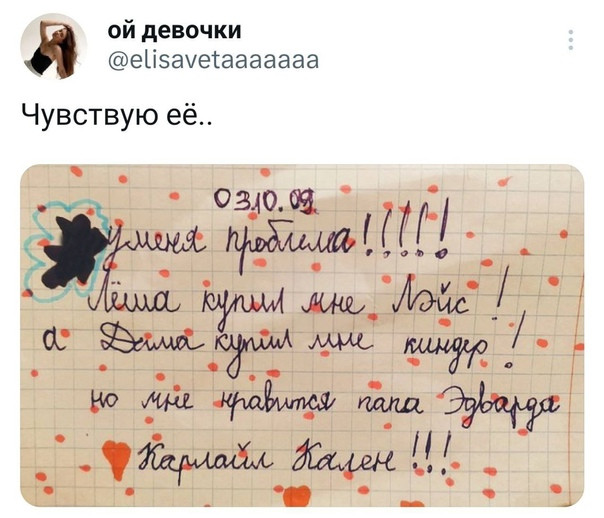 ой девочки
@elisavetaaaaaaa
Чувствую её..
03.10.09
у меня проблема!!!!!
Лёша купил мне Лэйс!
а Дима купил мне киндер!
но мне нравится папа Эдварда
Карлайл Кален!!!